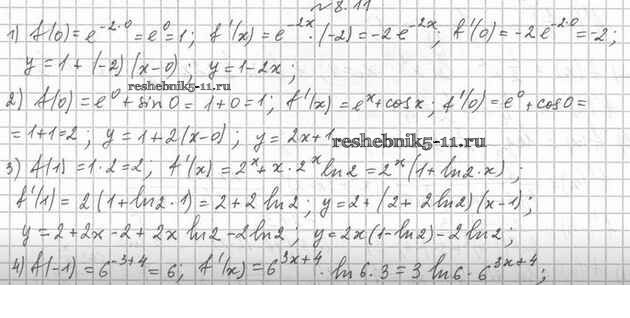 № 8.11
1) f(0) = e^{-2·0} = e^0 = 1; f'(x) = e^{-2x} · (-2) = -2e^{-2x}; f'(0) = -2e^{-2·0} = -2;
y = 1 + (-2)(x-0); y = 1-2x;
reshebnik5-11.ru
2) f(0) = e^0 + sin 0 = 1+0 = 1; f'(x) = e^x + cos x; f'(0) = e^0 + cos 0 =
= 1+1 = 2; y = 1+2(x-0); y = 2x+1
reshebnik5-11.ru
3) f(1) = 1·2 = 2, f'(x) = 2^x + x·2^x ln 2 = 2^x (1 + ln 2 · x);
f'(1) = 2(1 + ln 2 · 1) = 2 + 2 ln 2; y = 2 + (2 + 2 ln 2)(x-1);
y = 2 + 2x - 2 + 2x ln 2 - 2 ln 2; y = 2x(1 - ln 2) - 2 ln 2;
4) f(-1) = 6^{-3+4} = 6; f'(x) = 6^{3x+4} · ln 6 · 3 = 3 ln 6 · 6^{3x+4};